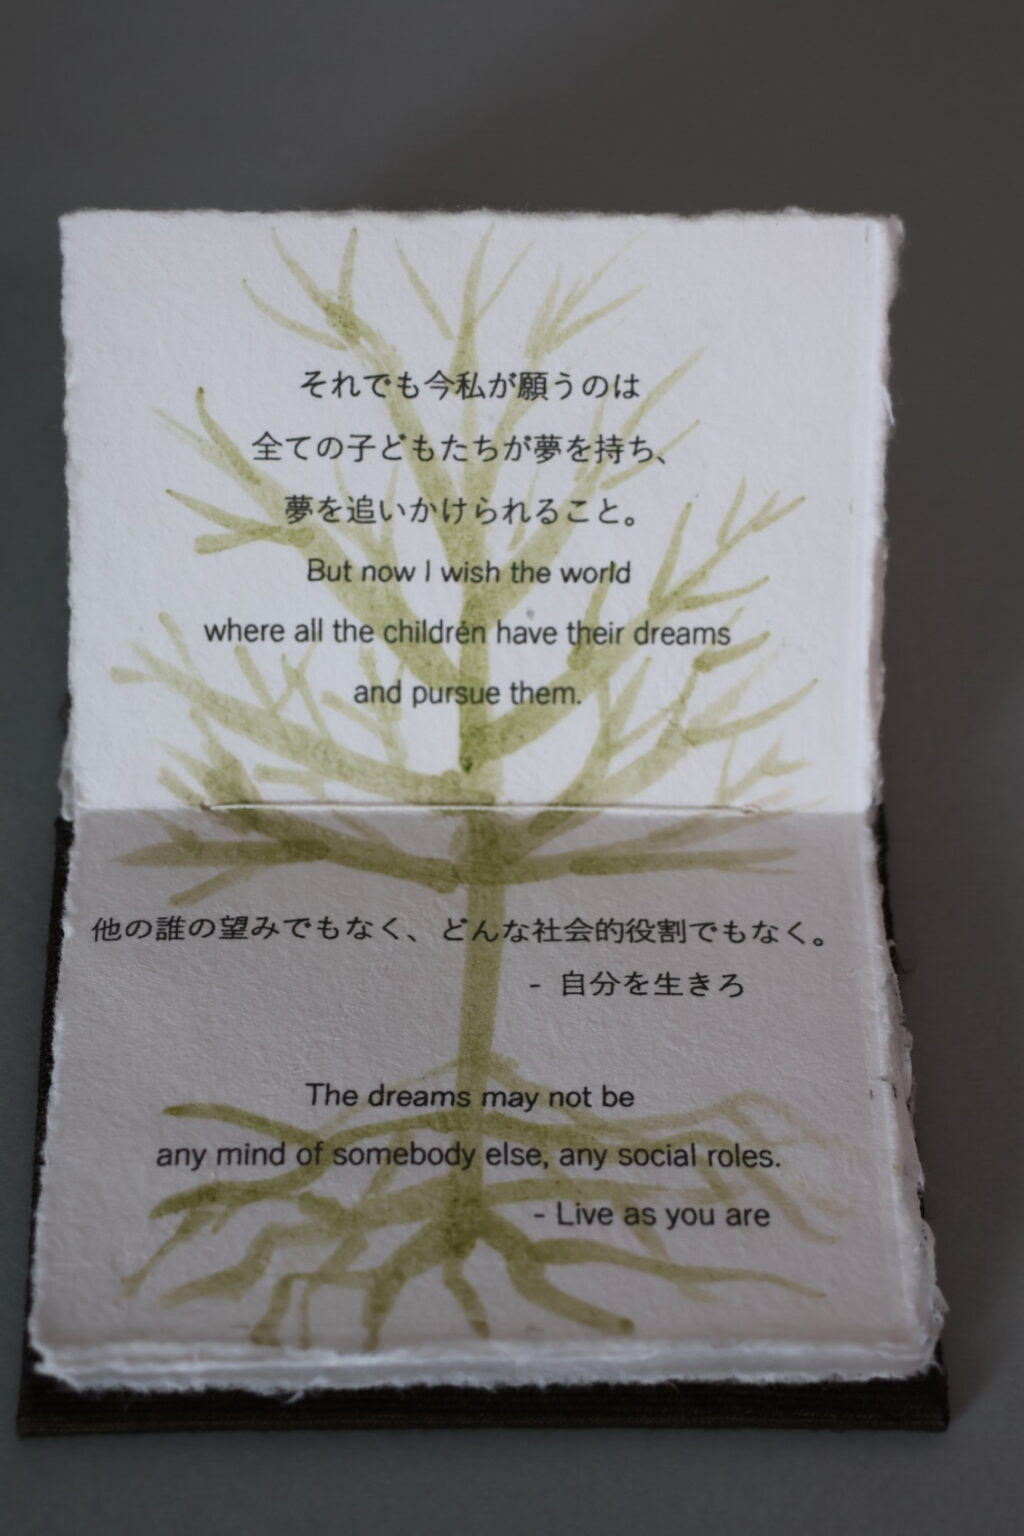 それでも今私が願うのは
全ての子どもたちが夢を持ち、
夢を追いかけられること。
But now I wish the world
where all the children have their dreams
and pursue them.
他の誰の望みでもなく、どんな社会的役割でもなく。
- 自分を生きろ
The dreams may not be
any mind of somebody else, any social roles.
- Live as you are